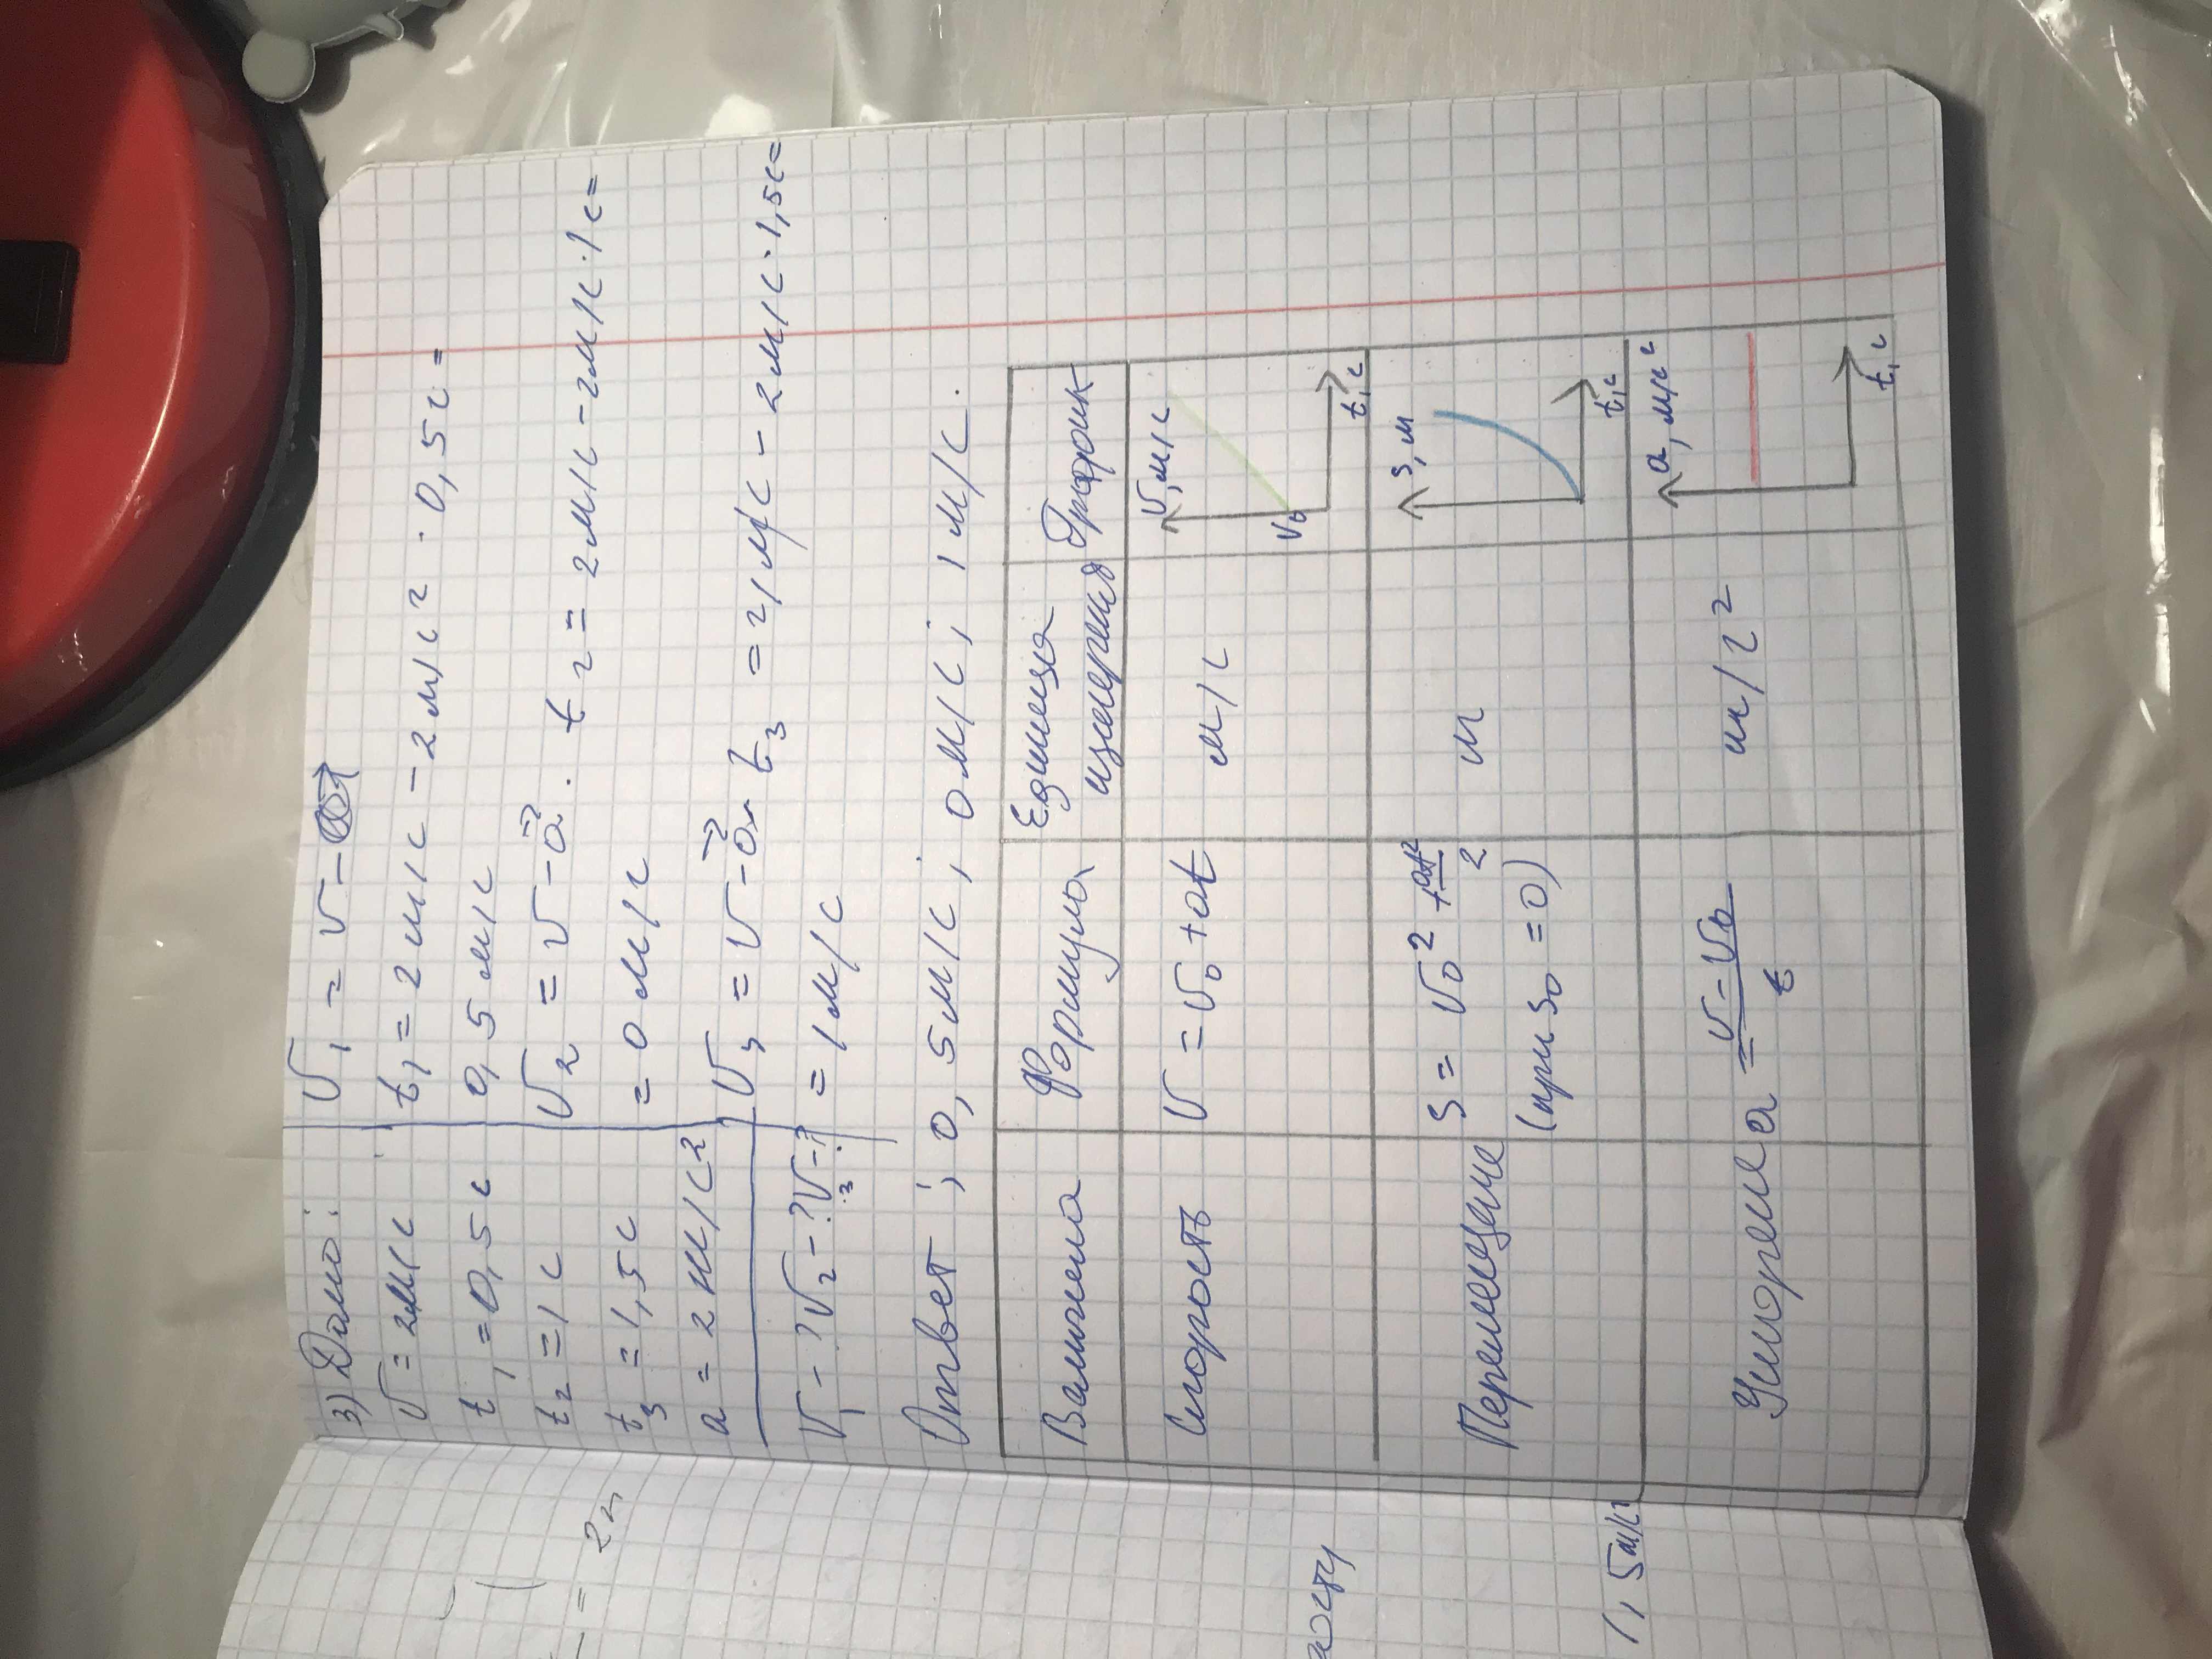 3) Дано:
V = 2м/с
t₁ = 0,5 с
t₂ = 1 с
t₃ = 1,5с
a = 2 м/с²
V₁ - ? V₂ - ? V₃ - ?
V₁ = V -
t₁ = 2 м/с - 2 м/с² · 0,5с =
0,5 м/с
V₂ = V - a⃗ · t₂ = 2м/с - 2м/с · 1с =
= 0 м/с
V₃ = V - a⃗ t₃ = 2м/с - 2м/с · 1,5с =
= 1м/с
Ответ: 0,5м/с; 0м/с; 1м/с.
Величина Формула Единица измерения График
Скорость V = V₀ + at м/с V, м/с V₀ t, с
Перемещение S = V₀² + at²/2 м S, м t, с
(при S₀ = 0)
Ускорение a = V - V₀ / t м/с² a, м/с t, с
= 2м
1,5м/с